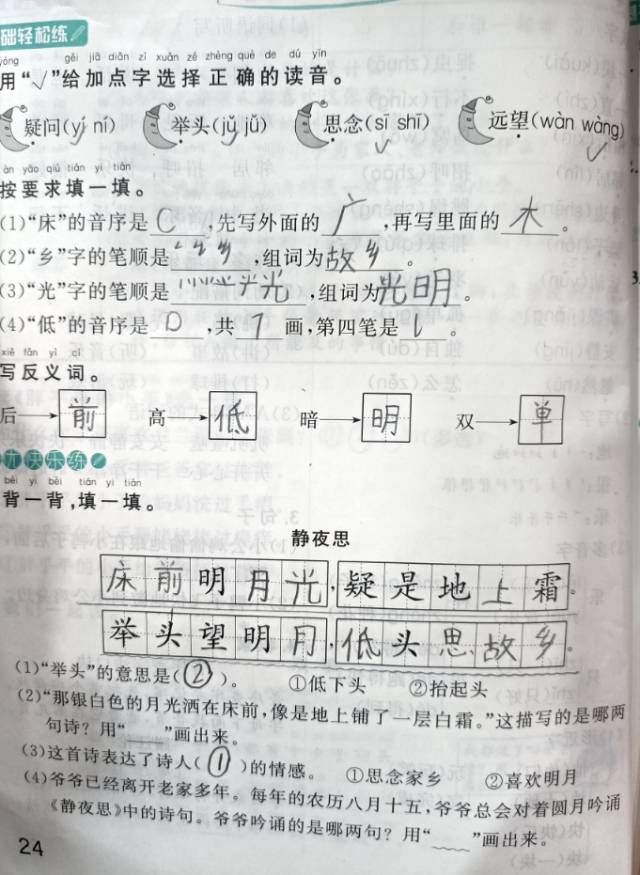 础轻松练
yóng gěi jiā diǎn zì xuǎn zé zhèng què de dú yīn
用“√”给加点字选择正确的读音。
疑问(yí ní) 举头(jǔ jǔ) 思念(sī shī) 远望(wàn wàng)
àn yāo qiú tián yi tián
按要求填一填。
(1)“床”的音序是C,先写外面的广,再写里面的木。
(2)“乡”字的笔顺是,组词为故乡。
(3)“光”字的笔顺是,组词为光明。
(4)“低”的音序是D,共7画,第四笔是。
xiě fǎn yì cí
写反义词。
后→前 高→低 暗→明 双→单
天乐练
bèi yi bèi tián yi tián
背一背,填一填。
静夜思
床前明月光,疑是地上霜。
举头望明月,低头思故乡。
(1)“举头”的意思是(②)。 ①低下头 ②抬起头
(2)“那银白色的月光洒在床前,像是地上铺了一层白霜。”这描写的是哪两
句诗?用“ ”画出来。
(3)这首诗表达了诗人(①)的情感。 ①思念家乡 ②喜欢明月
(4)爷爷已经离开老家多年。每年的农历八月十五,爷爷总会对着圆月吟诵
《静夜思》中的诗句。爷爷吟诵的是哪两句?用“ ”画出来。
24